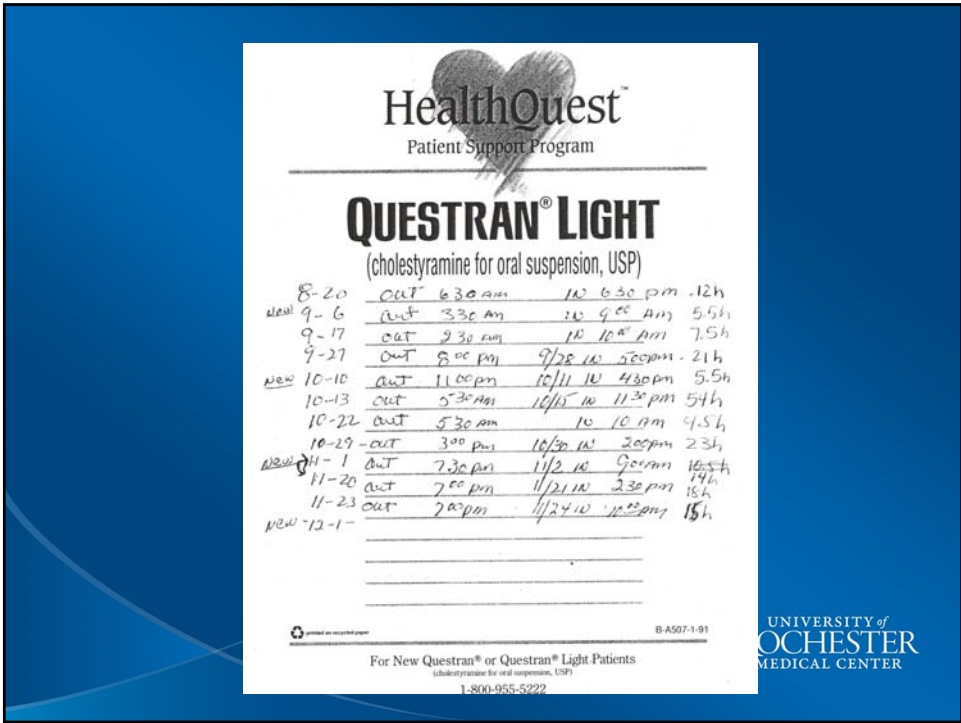 HealthQuest™
Patient Support Program
QUESTRAN® LIGHT
(cholestyramine for oral suspension, USP)
8-20 out 630 Am IN 630 pm - 12h
new 9-6 out 330 Am IN 9 00 Am 5.5h
9-17 out 230 Am IN 10 00 Am 7.5h
9-27 out 8 00 pm 9/28 IN 500pm - 21h
new 10-10 out 11 00pm 10/11 IN 430pm 5.5h
10-13 out 5 30 Am 10/15 IN 11 30 pm 54h
10-22 out 5 30 Am IN 10 Am 4.5h
10-29 - out 3 00 pm 10/30 IN 200pm 23h
new 11-1 out 7.30 pm 11/2 IN 900Am 16.5h
14h
11-20 out 7 00 pm 11/21 IN 230pm 18h
11-23 out 700pm 11/24 IN 10 00 Am 15h
new - 12-1 -
printed on recycled paper
B-A507-1-91
For New Questran® or Questran® Light Patients
(cholestyramine for oral suspension, USP)
1-800-955-5222
UNIVERSITY of
OCHESTER
MEDICAL CENTER